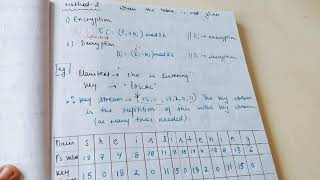 Method-2 when the table is not given
1) Encryption
Ei = (Pi + Ki) mod 26
2) Decryption
Di = (Ei - Ki) mod 26
Eg Plaintext → she is listening
Key → "PASCAL"
∴ Key stream → (15, 0, 18, 2, 0, 11) The key stream
is the repetition of this initial key stream
(as many times needed)
Plain s h e i s l i s t e n i n g
P's value 18 7 4 8 18 11 8 18 19 4 13 8 13 6
Key 15 0 18 2 0 11 15 0 18 2 0 11 15 0